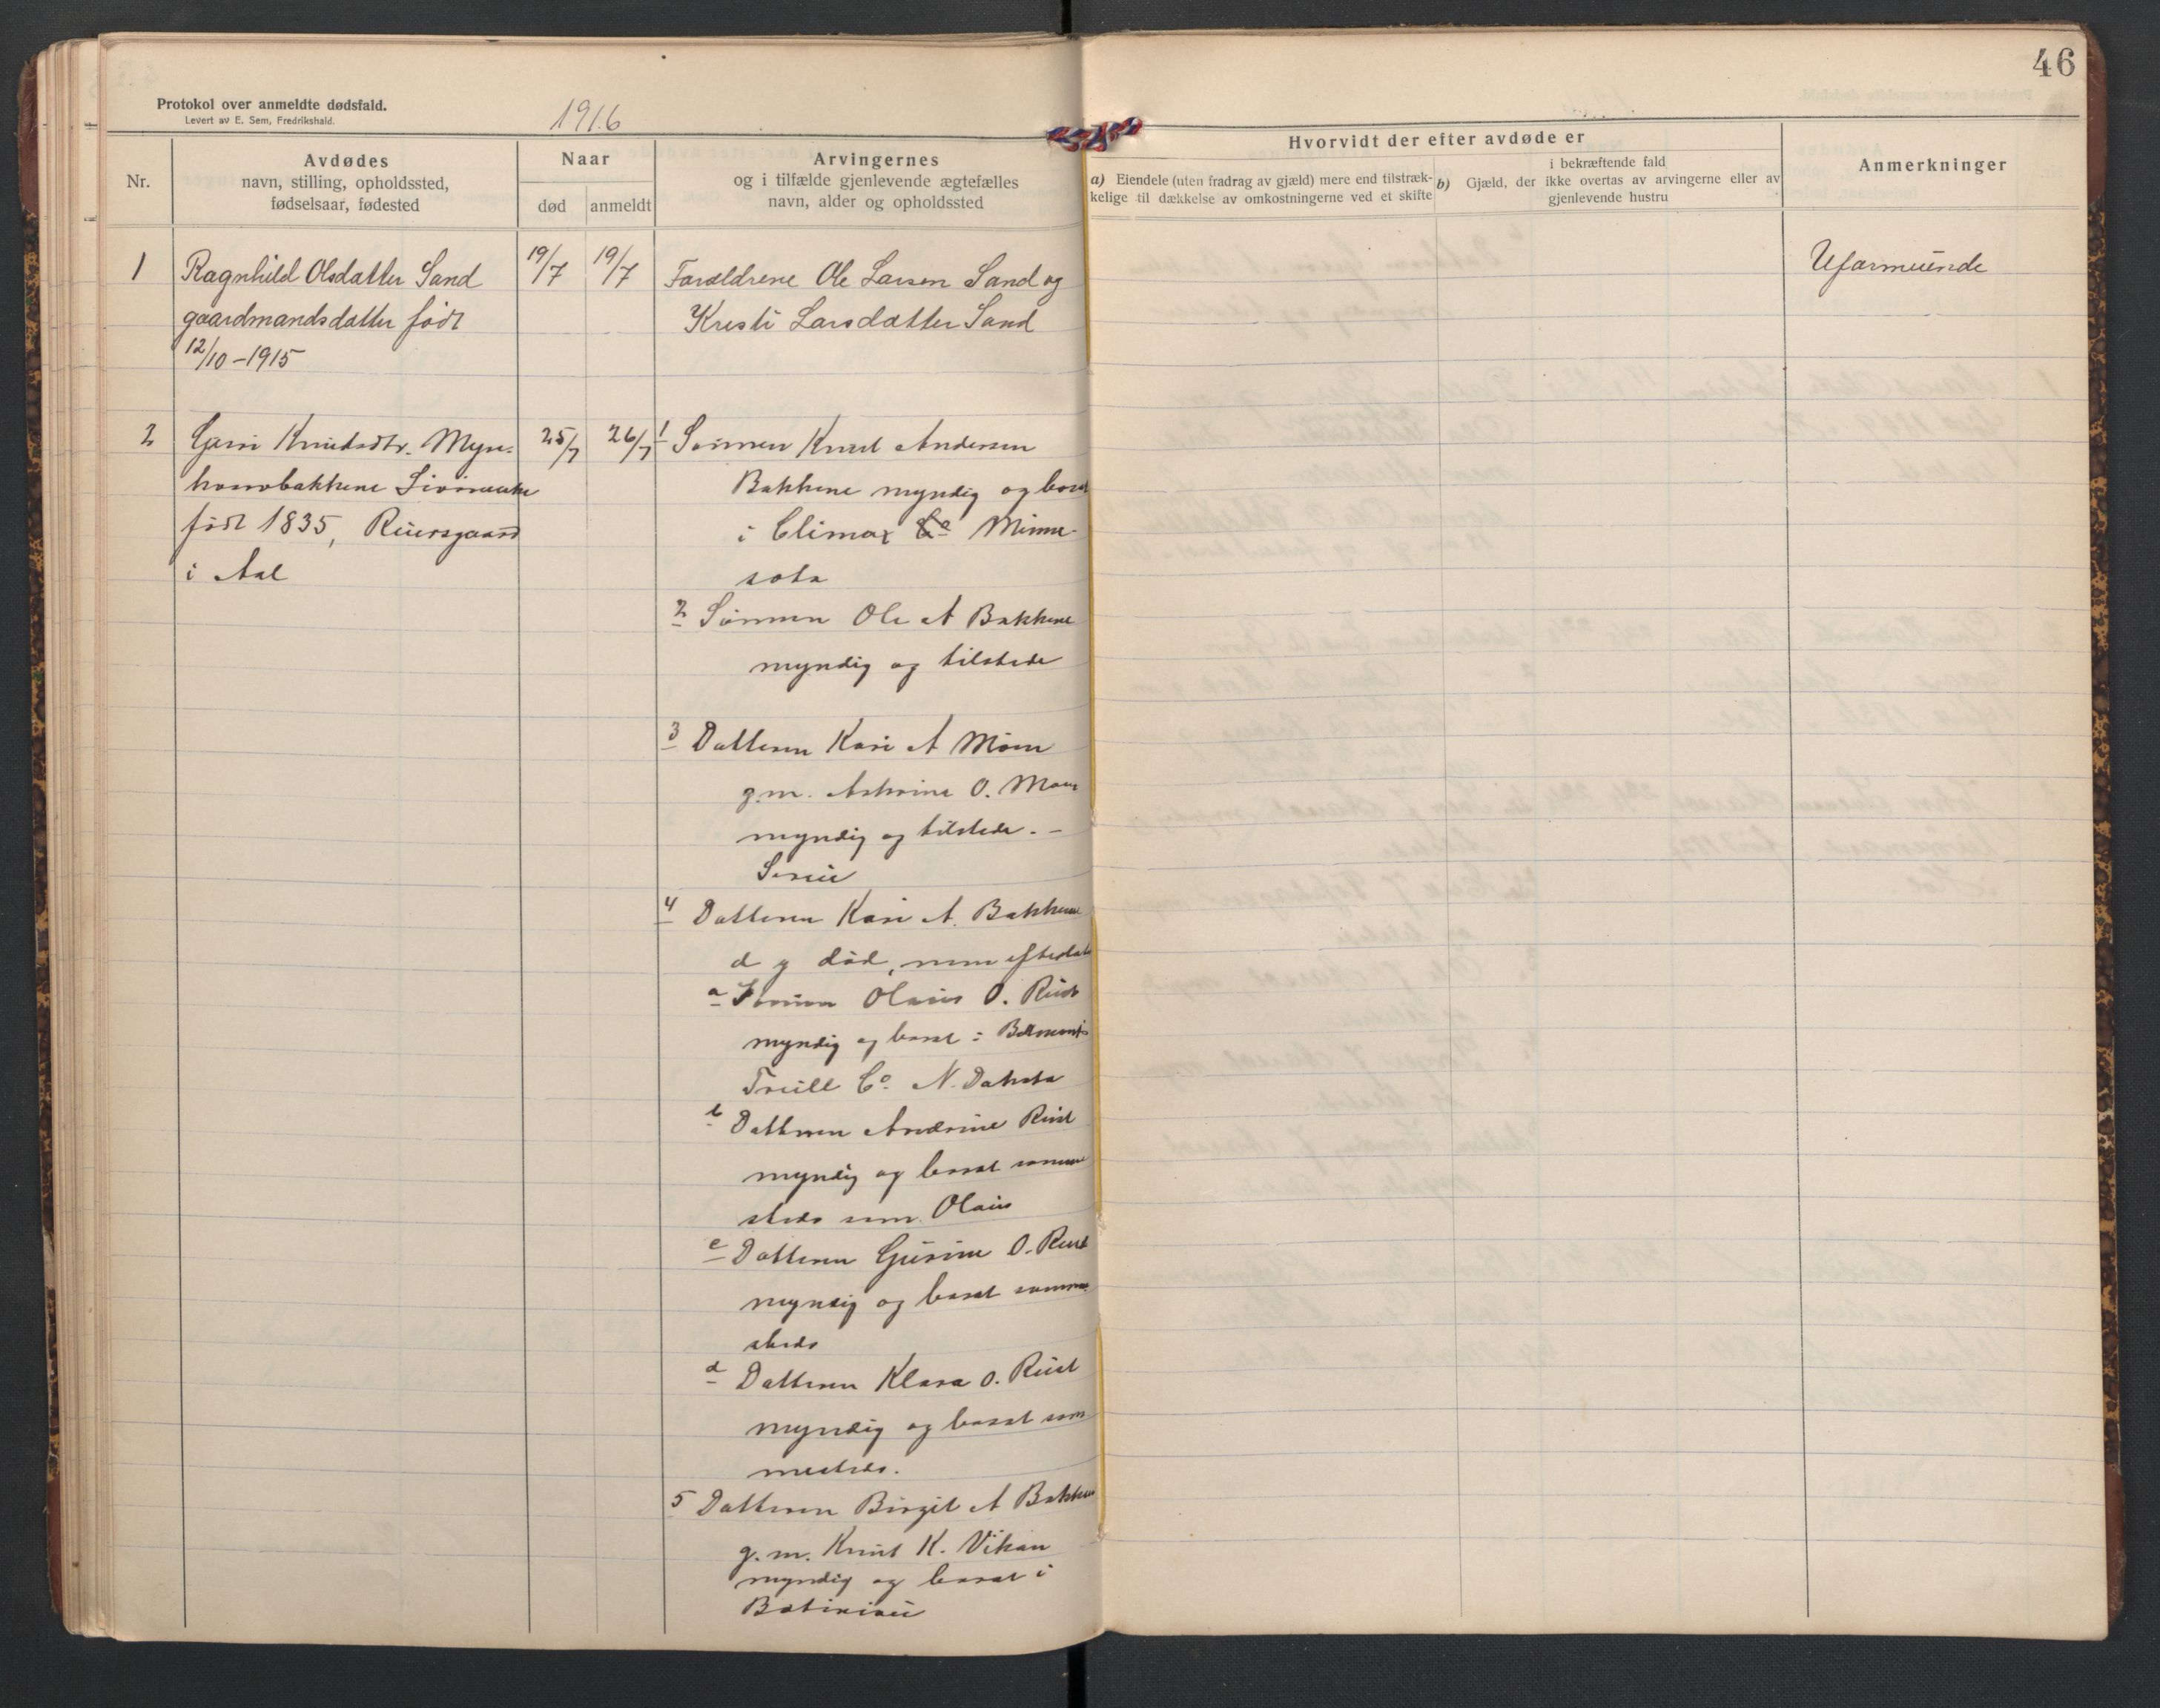 46
Protokol over anmeldte dødsfald.
Levert av E. Sem, Fredrikshald.
1916
Nr.
Avdødes
navn, stilling, opholdssted,
fødselsaar, fødested
Naar
død
anmeldt
Arvingernes
og i tilfælde gjenlevende ægtefælles
navn, alder og opholdssted
Hvorvidt der efter avdøde er
a) Eiendele (uten fradrag av gjæld) mere end tilstræk-
kelige til dækkelse av omkostningerne ved et skifte
i bekræftende fald
b) Gjæld, der ikke overtas av arvingerne eller av
gjenlevende hustru
Anmerkninger
1
Ragnhild Olsdatter Sand
gaardmandsdatter født
12/10-1915
19/7
19/7
Forældrene Ole Larsen Sand og
Kristi Larsdatter Sand
Uformuende
2
Guri Knudsdtr.
født 1835, Ruersgaard
i Aal
25/7
26/7
1 Sønnen Knut Andersen
Bakkene myndig og bosat
i Climax Co Minne-
sota
2 Sønnen Ole A Bakkene
myndig og tilstede
3 Datteren Kari A Moen
g.m. O. Moen
myndig og tilstede. –
4 Datteren Kari A. Bakkene
d y død, men efterlatt
a Sønnen Olaus O. Rust
myndig og bosat i Belmont
Traill Co. N. Dakota
b Datteren Andrine Rust
myndig og bosat samme
steds som Olaus
c Datteren Gurine O. Rust
myndig og bosat samme
steds
d Datteren Klara O. Rust
myndig og bosat sam-
mesteds.
5 Datteren Birgit A Bakken
g.m. Knut K. Vikan
myndig og bosat i